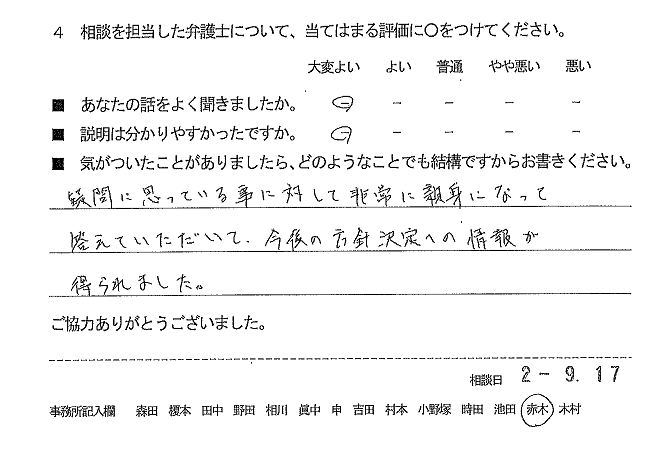 4 相談を担当した弁護士について、当てはまる評価に〇をつけてください。
大変よい よい 普通 やや悪い 悪い
■ あなたの話をよく聞きましたか。 － － － － －
■ 説明は分かりやすかったですか。 － － － － －
■ 気がついたことがありましたら、どのようなことでも結構ですからお書きください。
疑問に思っている事に対して非常に親身になって
答えていただいて、今後の方針決定への情報が
得られました。
ご協力ありがとうございました。
相談日 2-9.17
事務所記入欄 森田 榎本 田中 野田 相川 眞中 申 吉田 村本 小野塚 時田 池田 赤木 木村